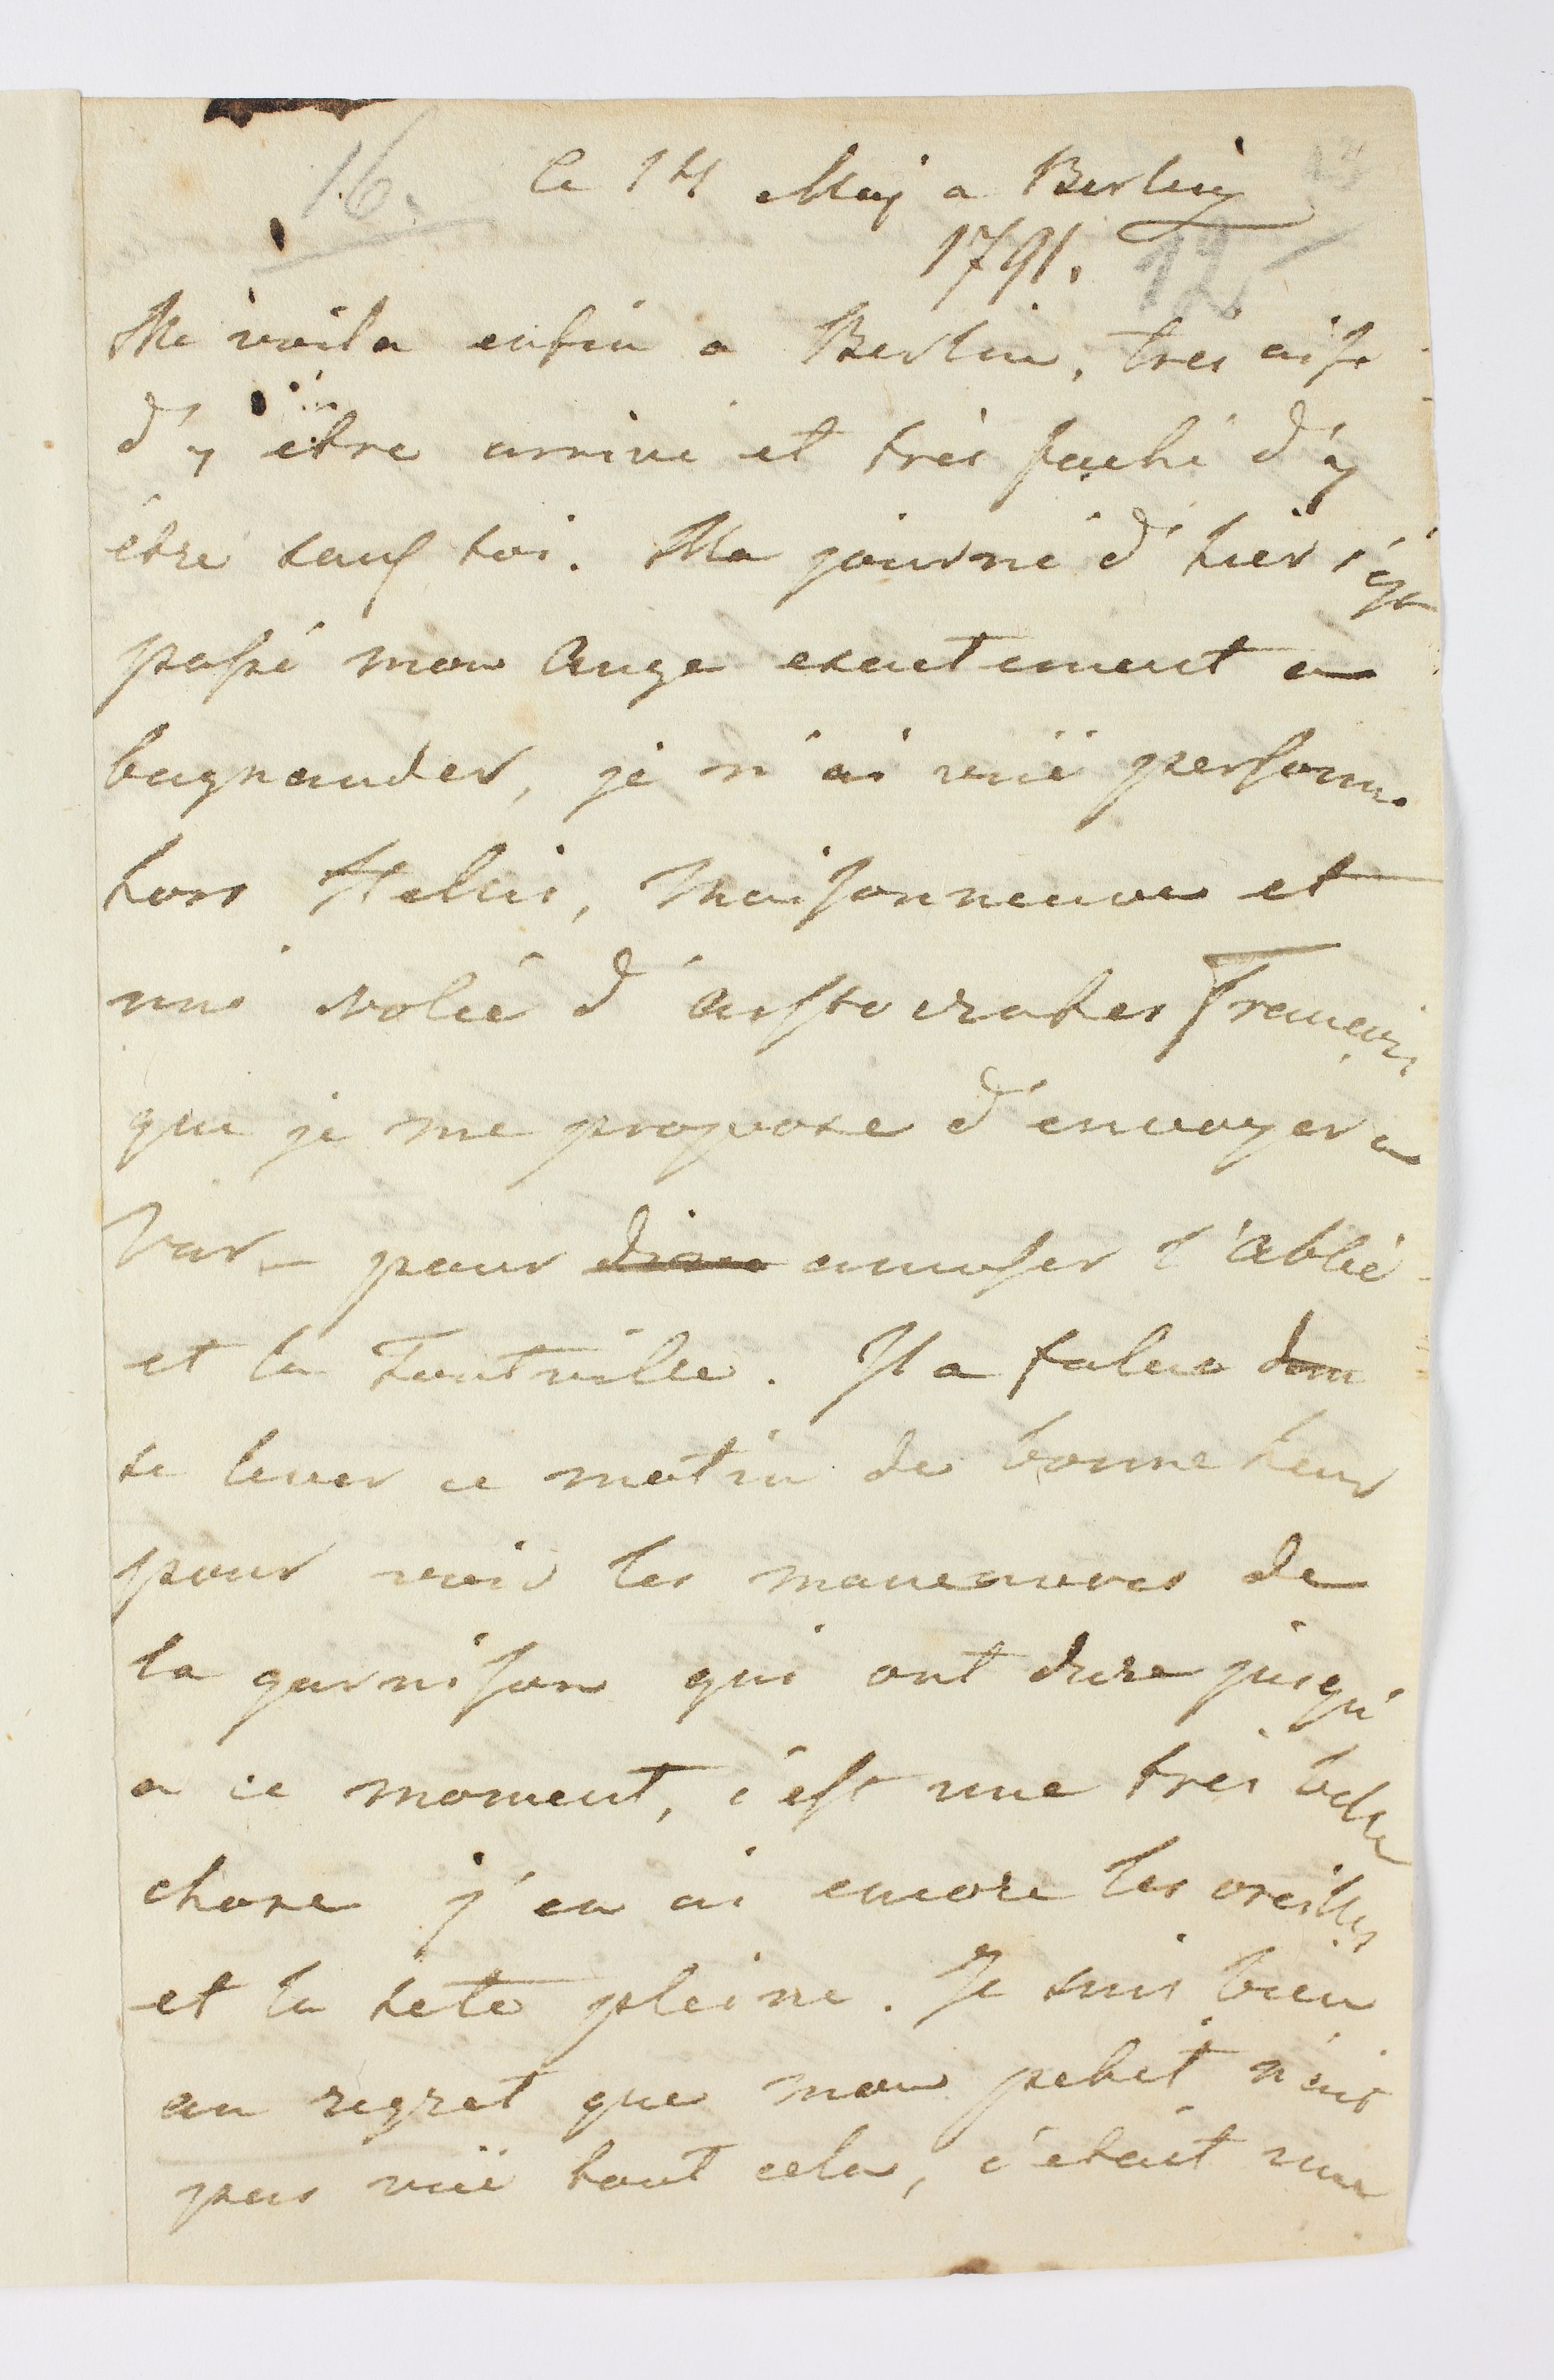 16.
Ce 14 May a Berlin
1791. 12
Me voila enfin a Berlin, tres aise
d'y être arrivé et très faché d'y
être sans toi. Ma journé d'hier s'est
passé mon Ange exactement a
bagnauder, je n'ai vuë personne
hors Heluis, Maisonneuve et
une volée d'aristocrates Francois
que je me propose d'envoyer a
Var- pour amuser l'Abbé
et la Toutville. Il a falue
se lever ce matin de bonne heur
pour voir les maneuvres de
la garnison qui ont dure jusqu'
a ce moment, c'est une très belle
chose j'en ai encore les oreilles
et la tete pleine. Je suis bien
au regret que mon petit n'ait
pas vuë tout cela, c'etait une